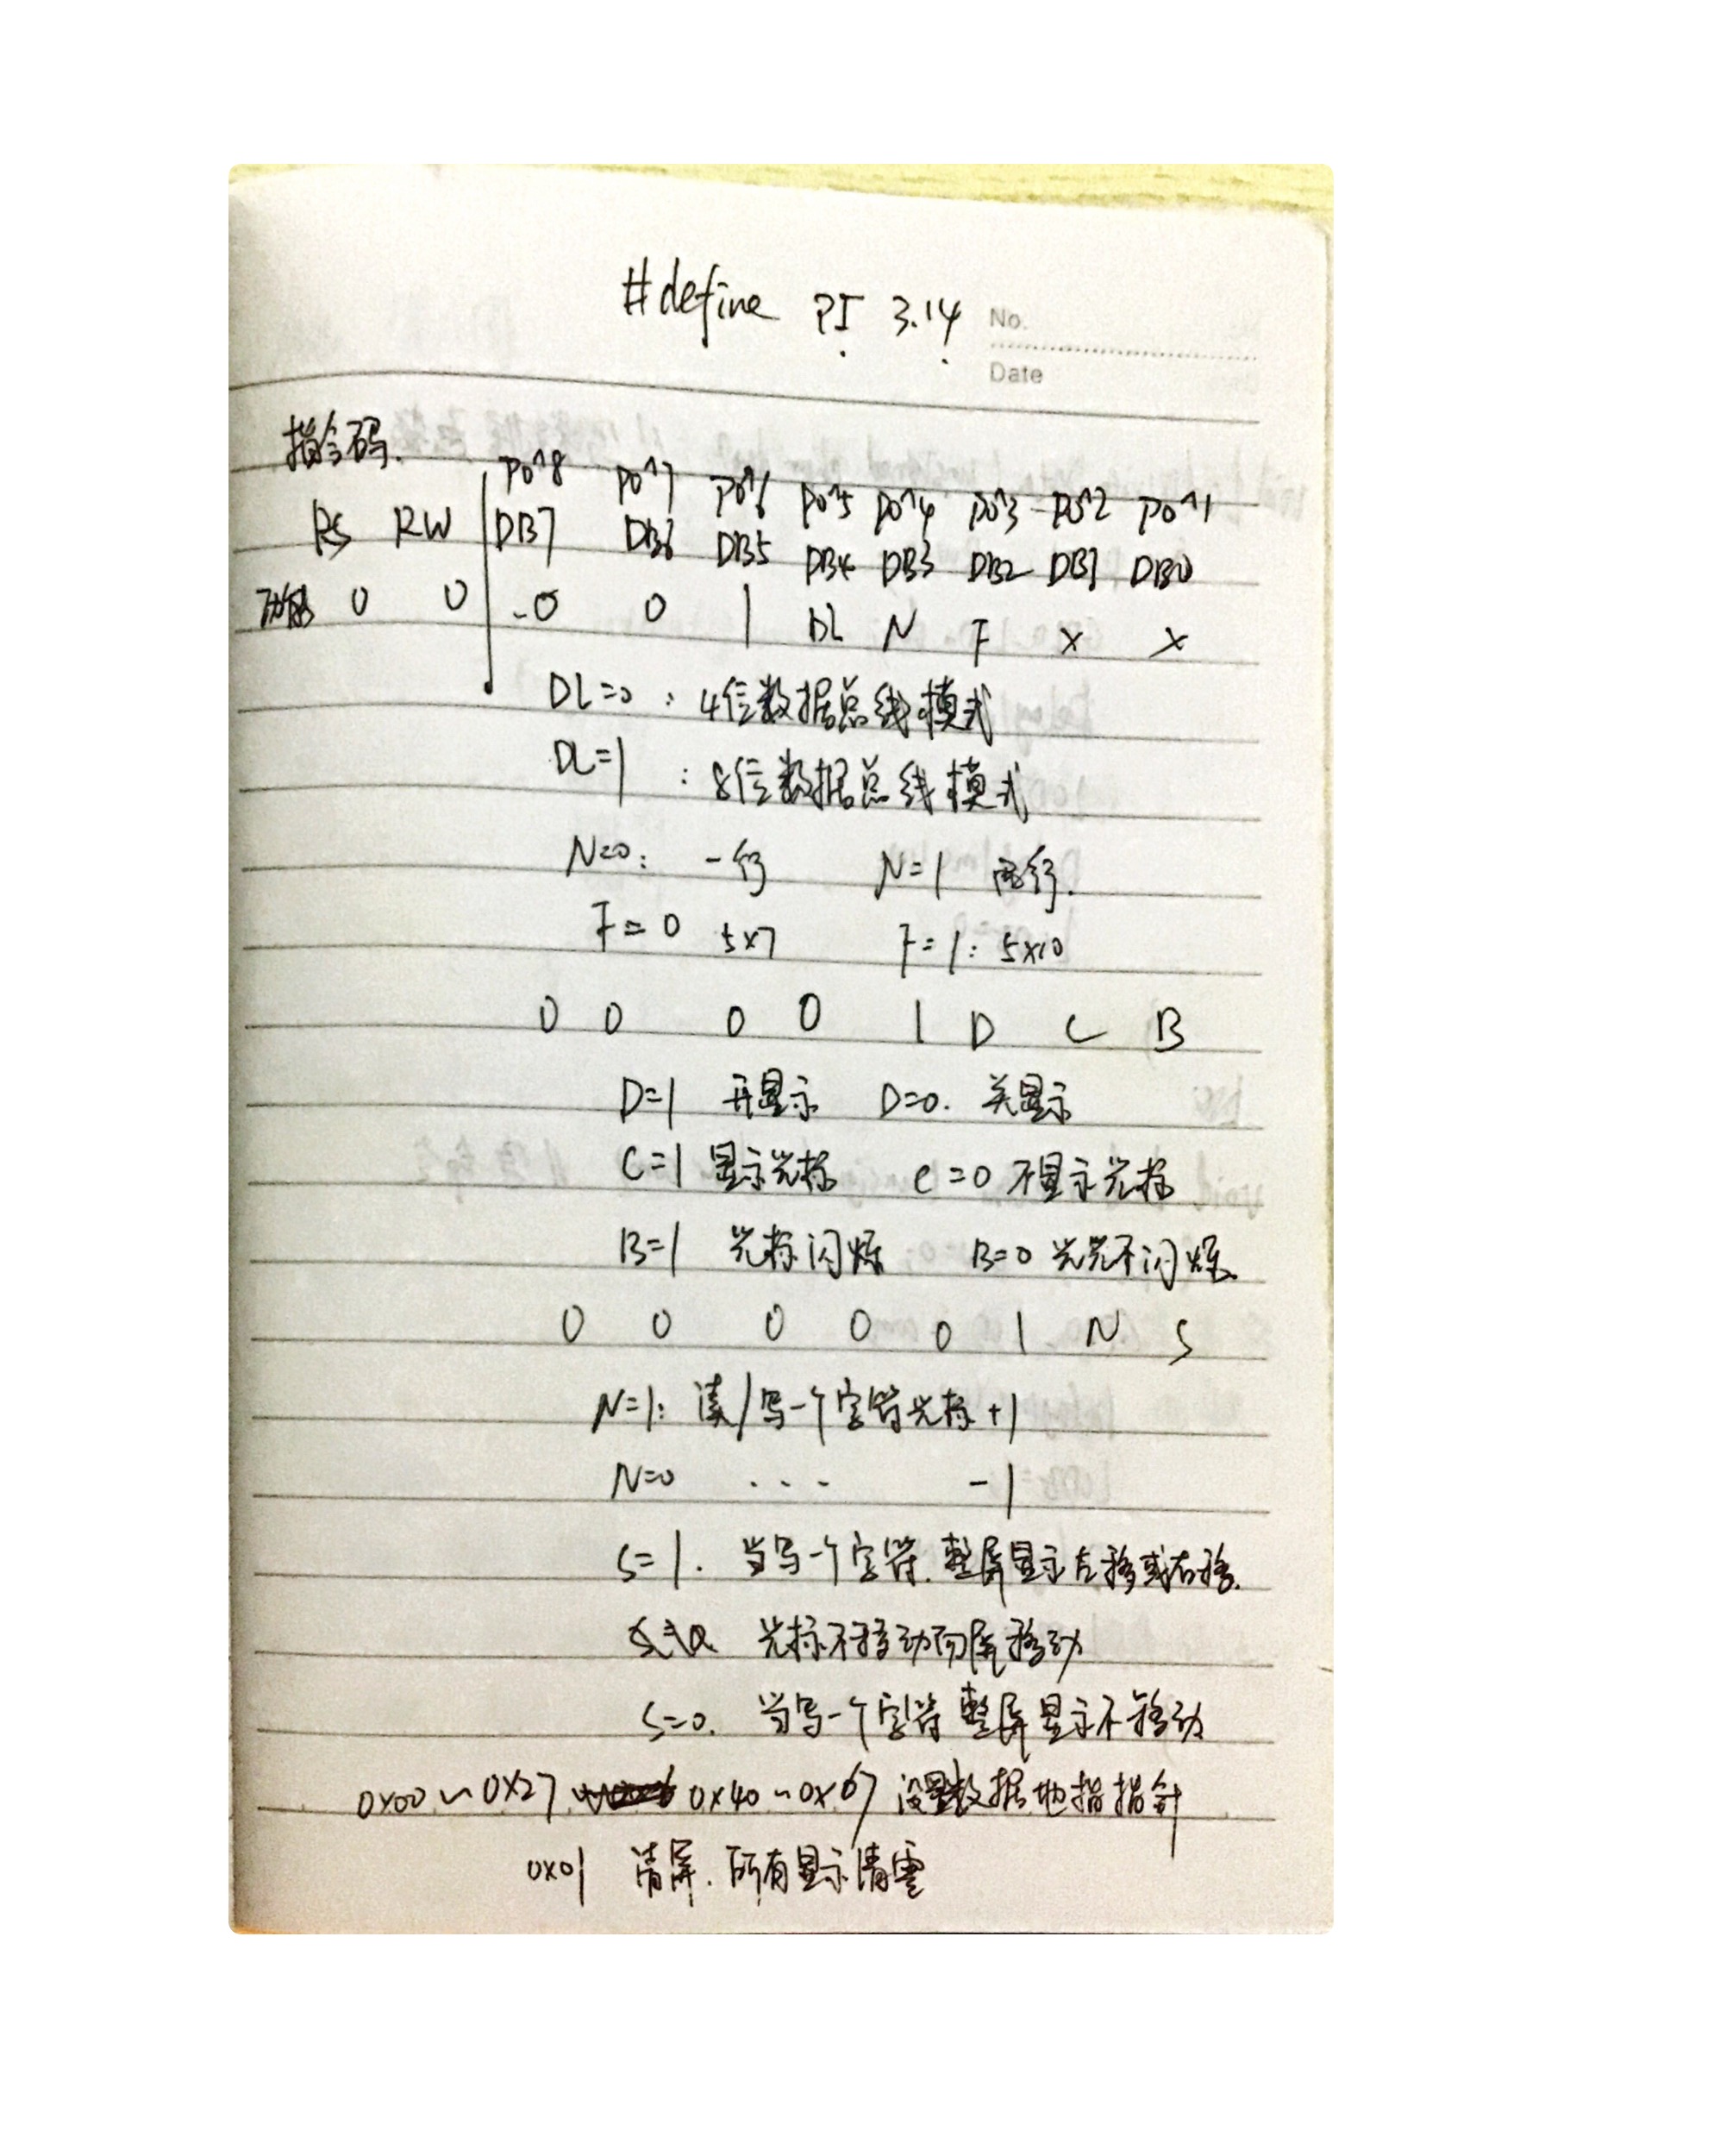 #define PI 3.14
No.
Date
指令码.
P0^8 P0^7 P0^6 P0^5 P0^4 P0^3 P0^2 P0^1
RS RW DB7 DB6 DB5 DB4 DB3 DB2 DB1 DB0
功能 0 0 0 0 1 DL N F X X
DL=0 : 4位数据总线模式
DL=1 : 8位数据总线模式
N=0: 一行 N=1 两行.
F=0 5x7 F=1: 5x10
0 0 0 0 1 D C B
D=1 开显示 D=0. 关显示
C=1 显示光标 C=0 不显示光标
B=1 光标闪烁 B=0 光光不闪烁
0 0 0 0 0 1 N S
N=1: 读/写一个字符光标+1
N=0 ... -1
S=1. 当写一个字符.整屏显示左移或右移.
光标不移动而屏移动
S=0. 当写一个字符 整屏显示不移动
0x00~0x27 0x40~0x67 设置数据地指指针
0x01 清屏.所有显示清零